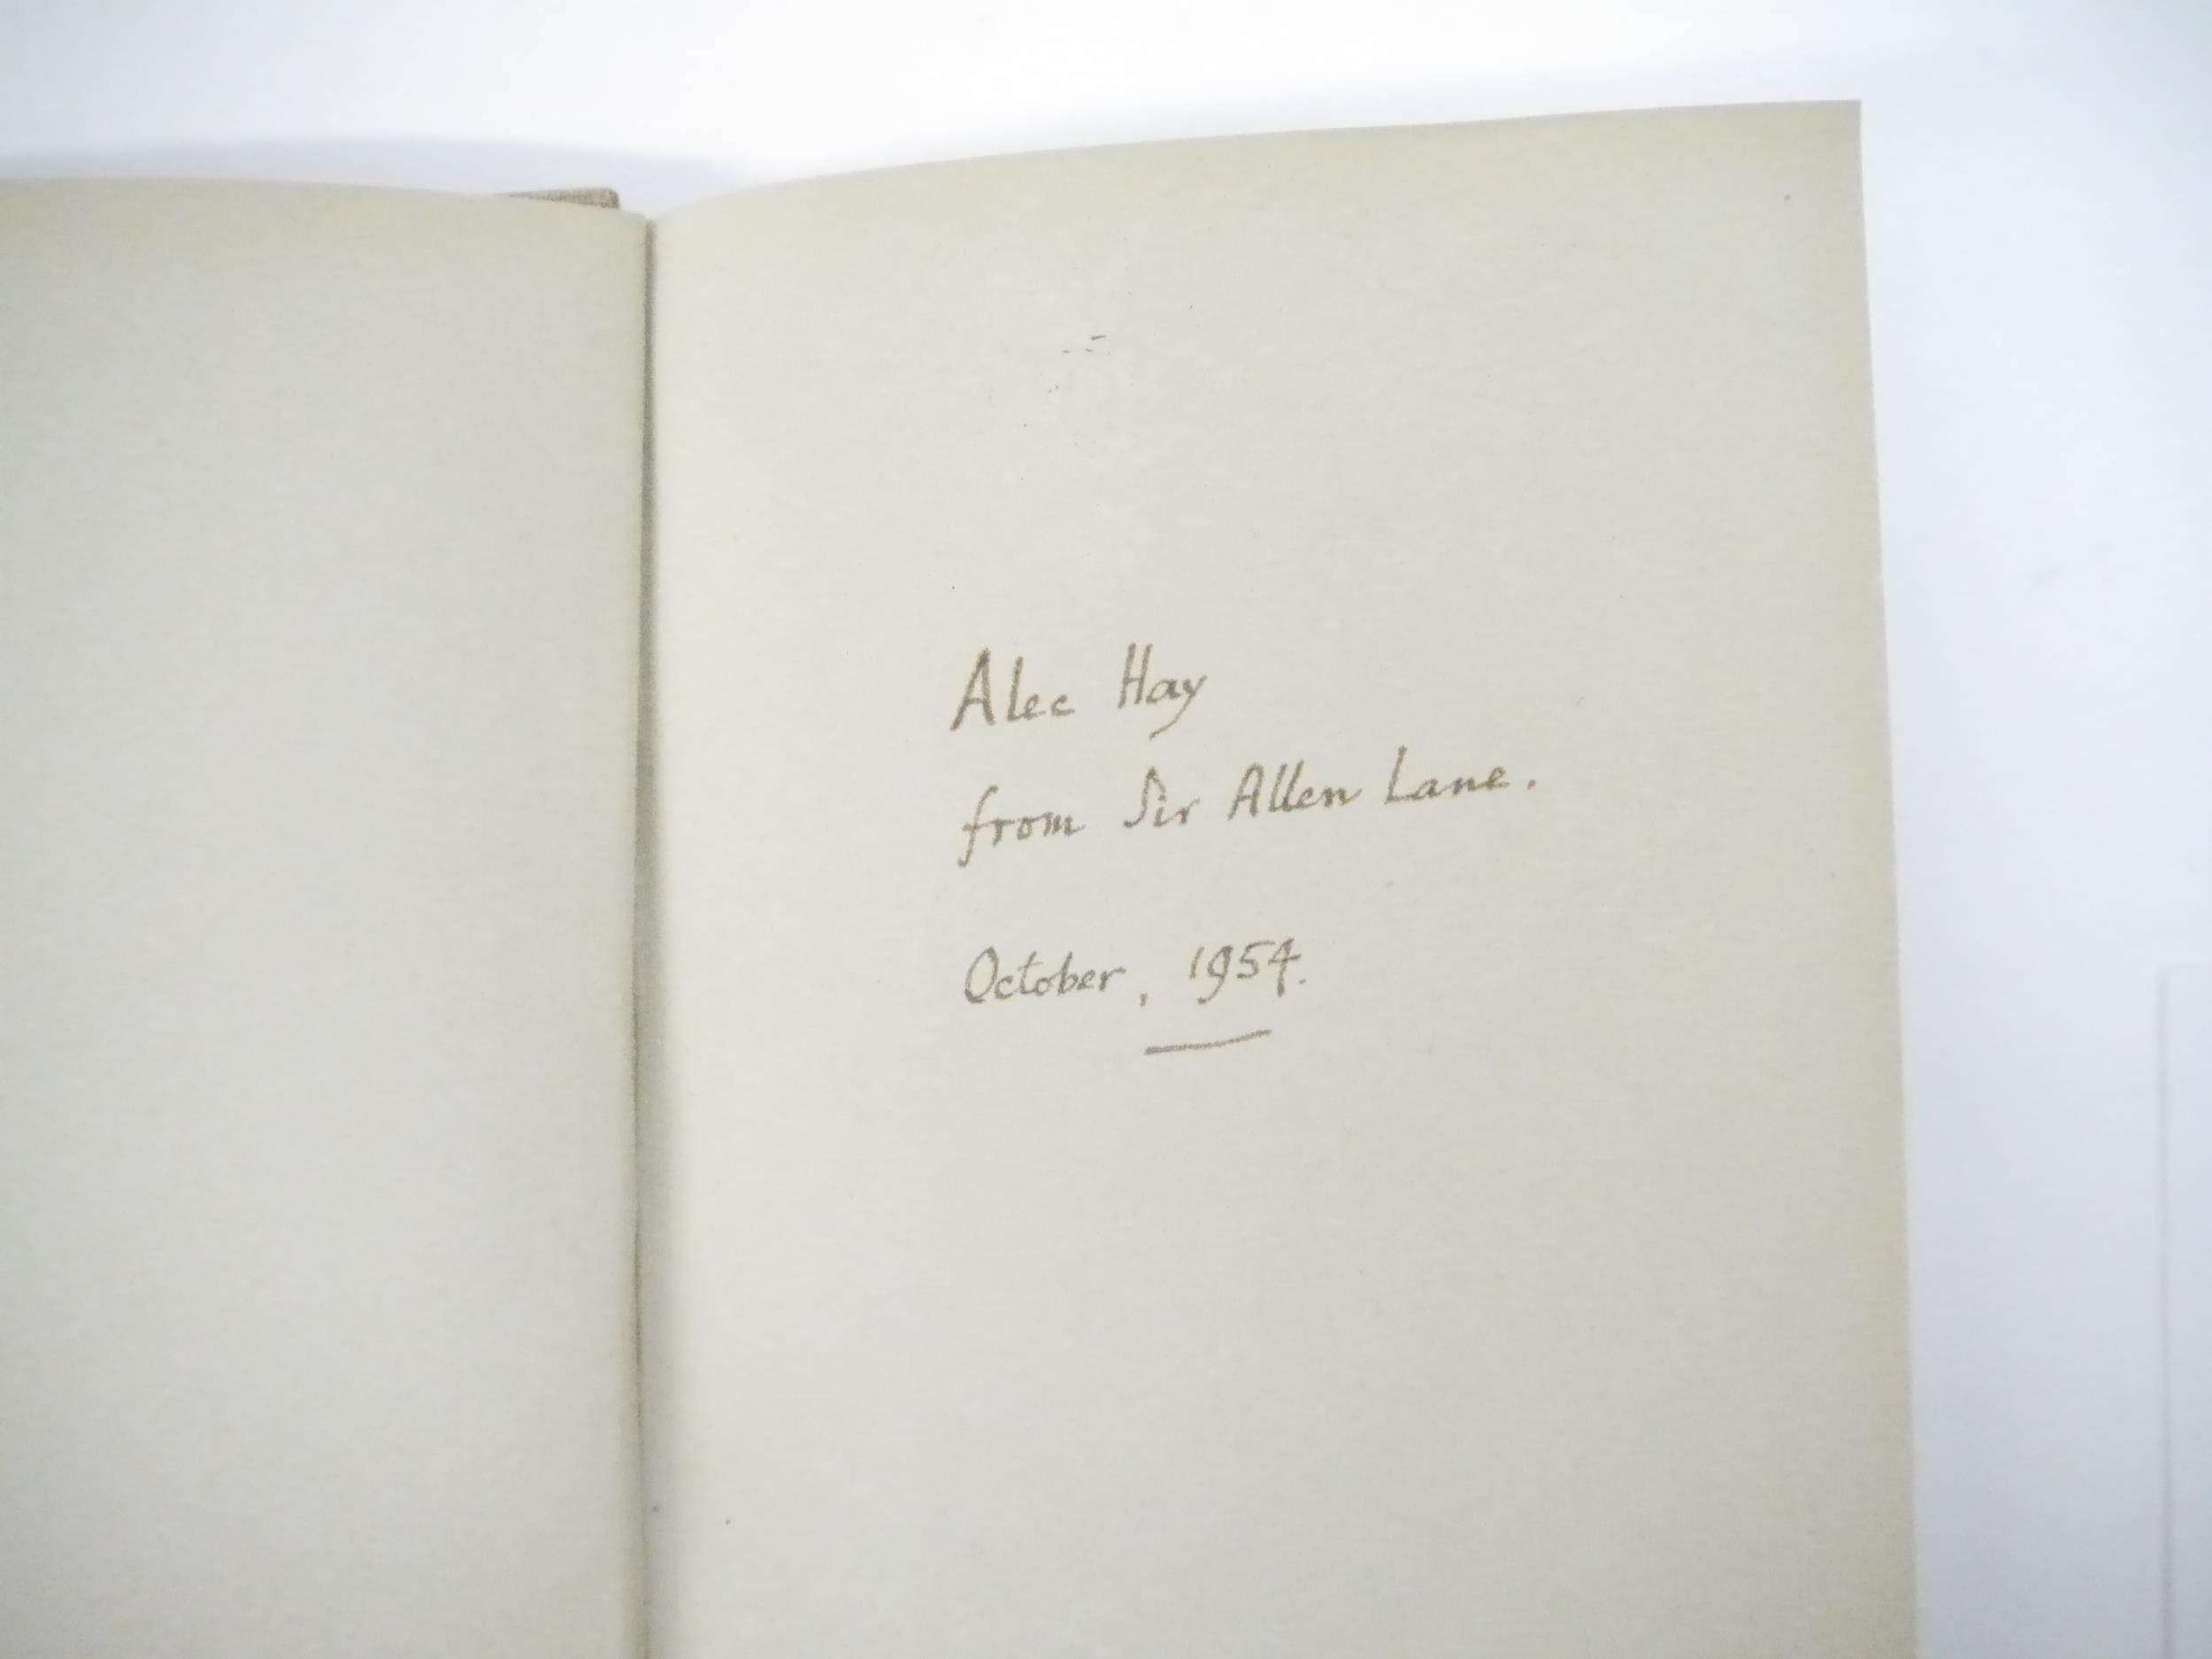 Alec Hay
from Sir Allen Lane.
October, 1954.